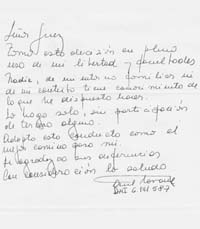 Señor Juez
Tomo esta decisión en pleno
uso de mi libertad y facultades
Nadie, de mi entorno familiar ni
de mi       tiene conocimiento de
lo que he dispuesto hacer.
Lo hago solo, sin participación
de tercero alguno.
Adopto esta conducta como el
mejor camino para mí.
       sus deferencias
Con consideración lo saluda
DNI